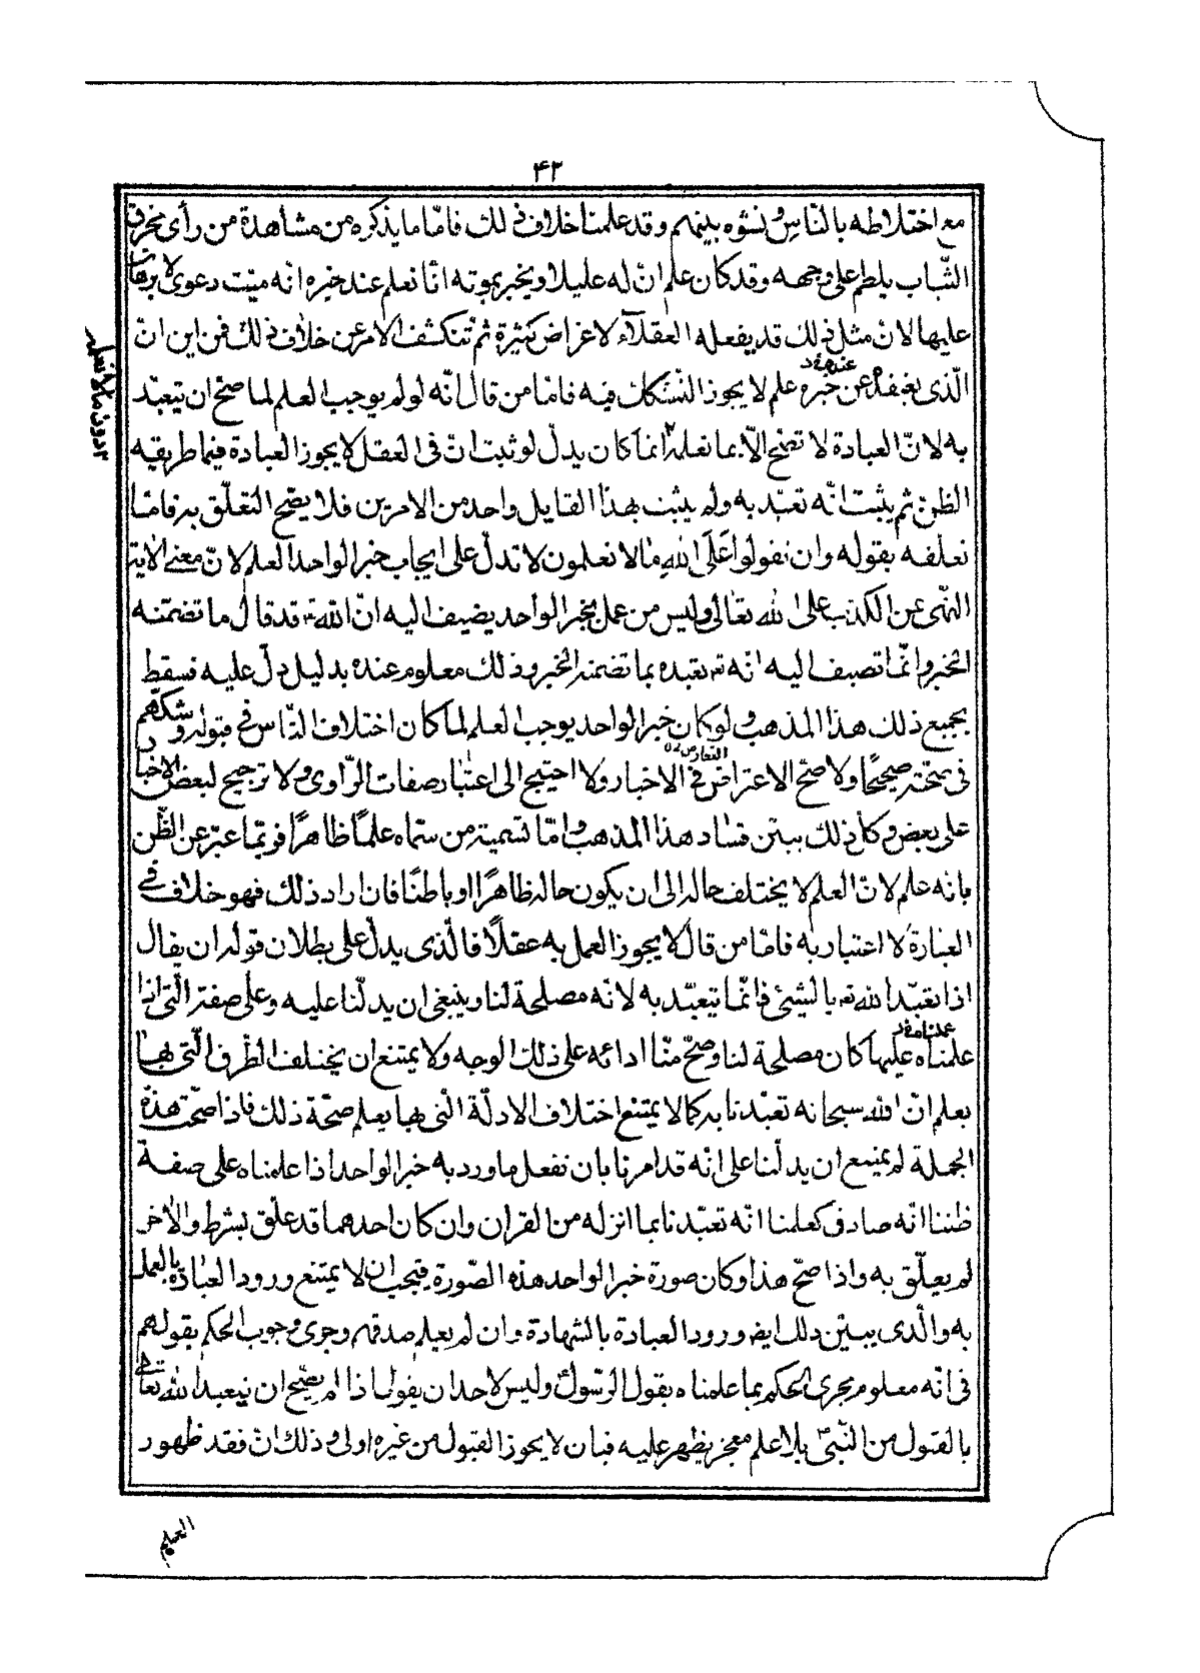 ۴۲
مع اختلاطه بالنّاس و نشوه بينهم و قد علمنا خلاف ذلك فامّا ما يذكره من مشاهدة من رأى مخرق
الثّياب يلطم على وجهه و قد كان علم انّ له عليلا و يخبر بموته انّا نعلم عند خبره انّه ميّت دعوى لا برهان
عليها لانّ مثل ذلك قد يفعله العقلاء لاغراض كثيرة ثمّ تنكشف الامر عن خلاف ذلك فمن اين انّ
عنده
الّذى يعقده عن خبره علم لا يجوز التّشكك فيه فامّا من قال انّه لو لم يوجب العلم لما صحّ ان يتعبّد
به لانّ العبادة لا تصحّ الّا بما نعلم انما كان يدلّ لو ثبت انّ فى العقل لا يجوز العبادة فيما طريقه
دون ما لا نعلمه
الظنّ ثم يثبت انّه تعبّد به و لم يثبت بهذا القايل واحد من الامرين فلا يصحّ التعلّق به فامّا
تعلقه بقوله و ان تقولوا عَلَى اللهِ ما لا تعلمون لا تدلّ على ايجاب خبر الواحد العلم لانّ معنى الاية
النهى عن الكذب على الله تعالى و ليس من عمل بخبر الواحد يضيف اليه انّ الله تع قد قال ما تضمّنه
الخبر و انّما تضيف اليه انّه تع تعبده بما تضمنه الخبر و ذلك معلوم عنده بدليل دلّ عليه فسقط
بجميع ذلك هذا المذهب و لو كان خبر الواحد يوجب العلم لما كان اختلاف النّاس فى قبوله و شكّهم
التعارض
فى صحّته صحيحًا و لا صحّ الاعتراض فى الاخبار و لا احتيج الى اعتبار صفات الرّاوى و لا ترجيح لبعض الاخبار
على بعض و كلّ ذلك يبيّن فساد هذا المذهب و امّا تسمية من سمّاه علمًا ظاهرًا فربّما عبّر عن الظّن
بانّه علم لانّ العلم لا يختلف حاله الى ان يكون حاله ظاهرًا او باطنًا فان اراد ذلك فهو خلاف فى
العبارة لا اعتبار به فامّا من قال لا يجوز العمل به عقلًا فالّذى يدلّ على بطلان قوله ان يقال
اذا تعبّد الله تع بالشيئ فانّما تعبّد به لانّه مصلحة لنا و ينبغى ان يدلّنا عليه و على صفته الّتى اذا
علمناه عليها كان مصلحة لنا و صحّ منّا ادائه على ذلك الوجه و لا يمتنع ان يختلف الطّرق الّتى بها
يعلم انّ الله سبحانه تعبّدنا به كما لا يمتنع اختلاف الادلّة الّتى بها يعلم صحّة ذلك فاذا صحّت هذه
الجملة لم يمتنع ان يدلّنا على انّه قد امرنا بان نفعل ما ورد به خبر الواحد اذا علمناه على صفة
ظننا انّه صادق كعلمنا انّه تعبّدنا بما انزله من القران و ان كان احدهما قد علّق بشرط و الاٰخر
لم يعلّق به و اذا صحّ هذا و كان صورة خبر الواحد هذه الصّورة فيجب ان لا يمتنع ورود العبادة بالعمل
به و الّذى يبيّن ذلك ايض ورود العبادة بالشهادة و ان لم يعلم صدقهم و جرى وجوب الحكم بقولهم
فى انّه معلوم مجرى الحكم بما علمناه بقول الرّسول و ليس لاحد ان يقول اذا لم يصحّ ان يتعبد الله تعالى
بالقبول من النّبىّ بلا علم معجز يظهر عليه فبان لا يجوز القبول من غيره اولى و ذلك انّ فقد ظهور
العلم